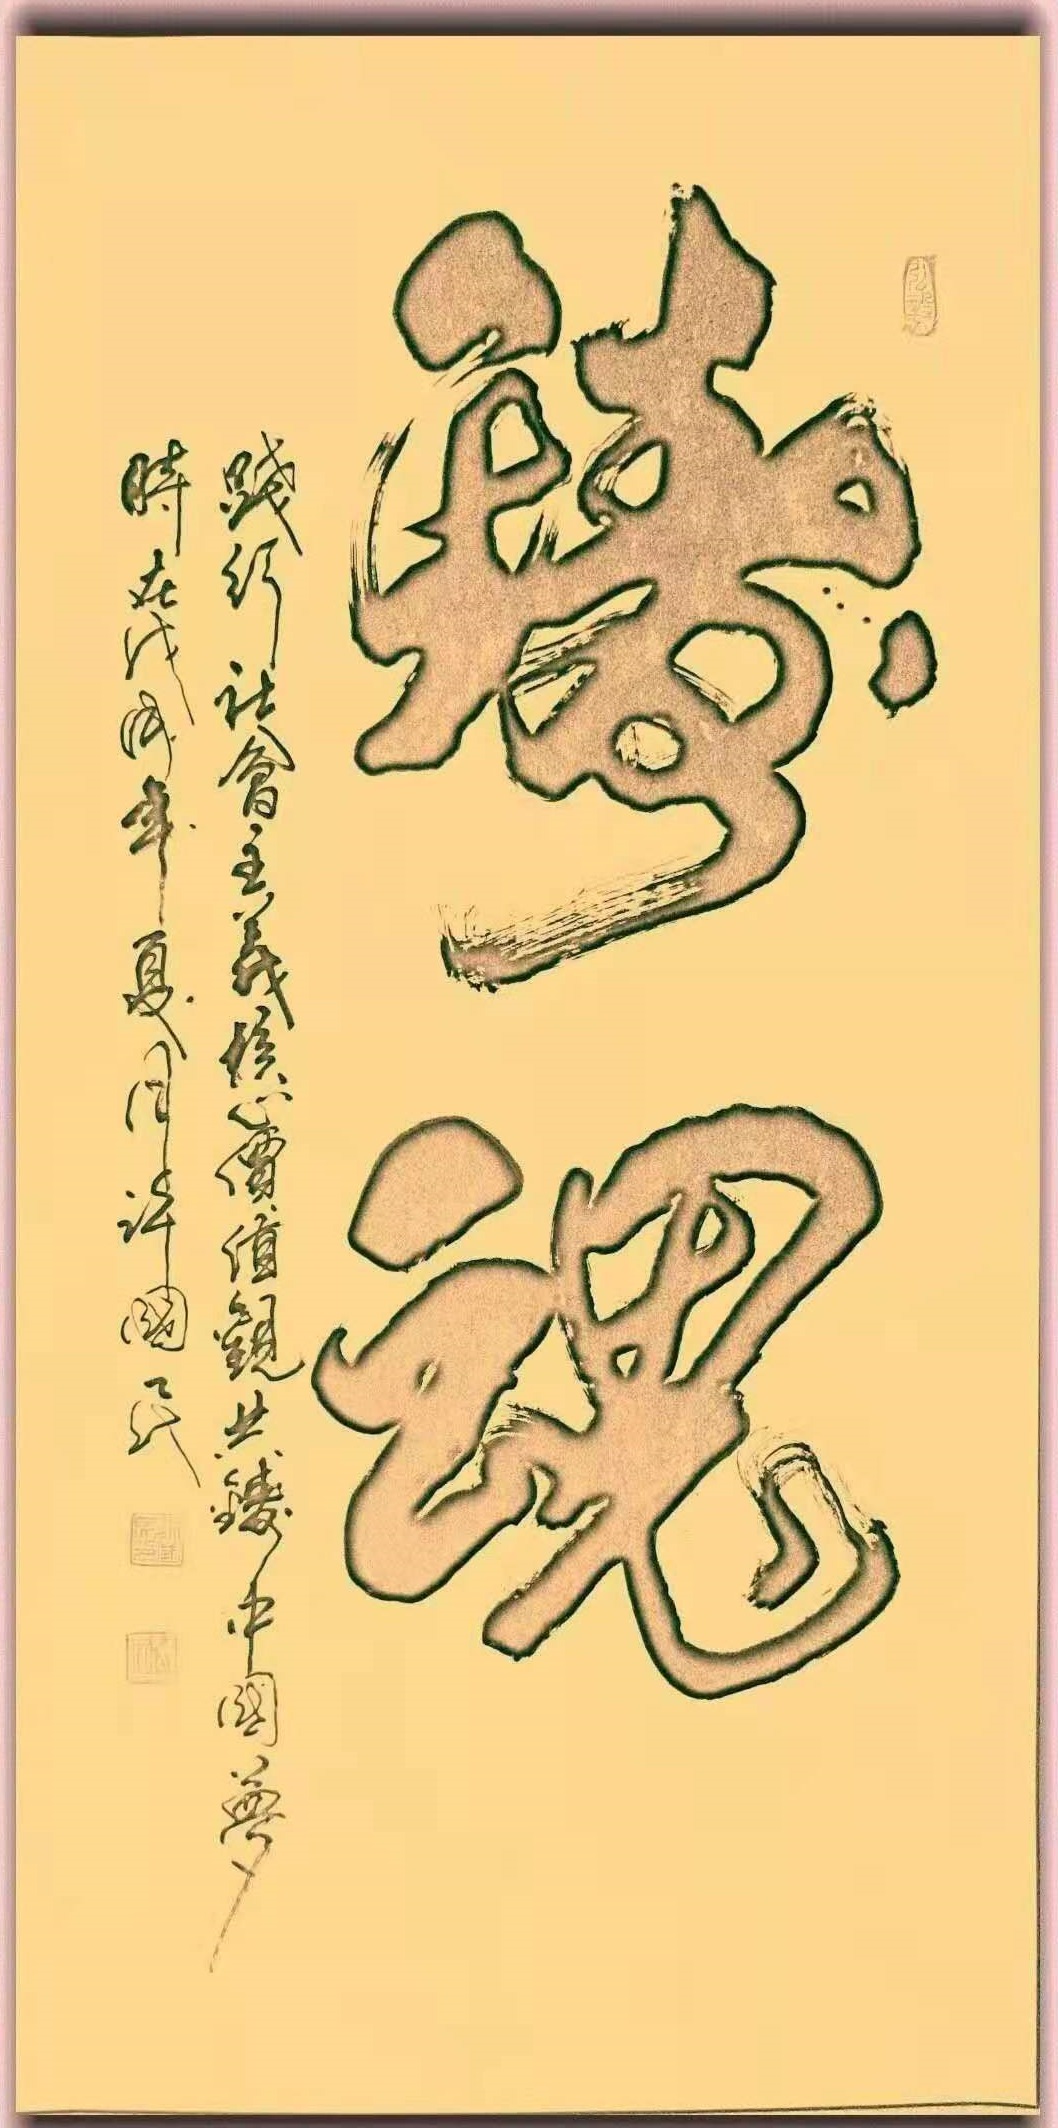 鑄魂
践行社會主義核心價值觀共鑄中國夢
時在戊戌年夏月許國民